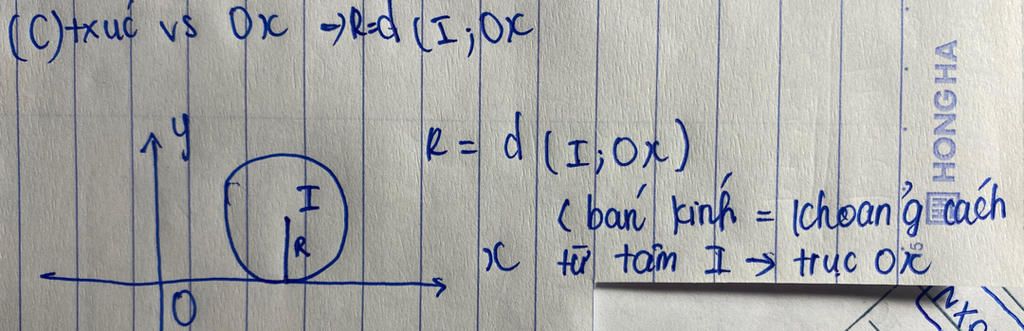 (C) txúc vs Ox → R=d (I; Ox
y
R = d (I; Ox)
I
(bán kính = khoảng cách
R
x
từ tâm I → trục Ox
O
HONGHA